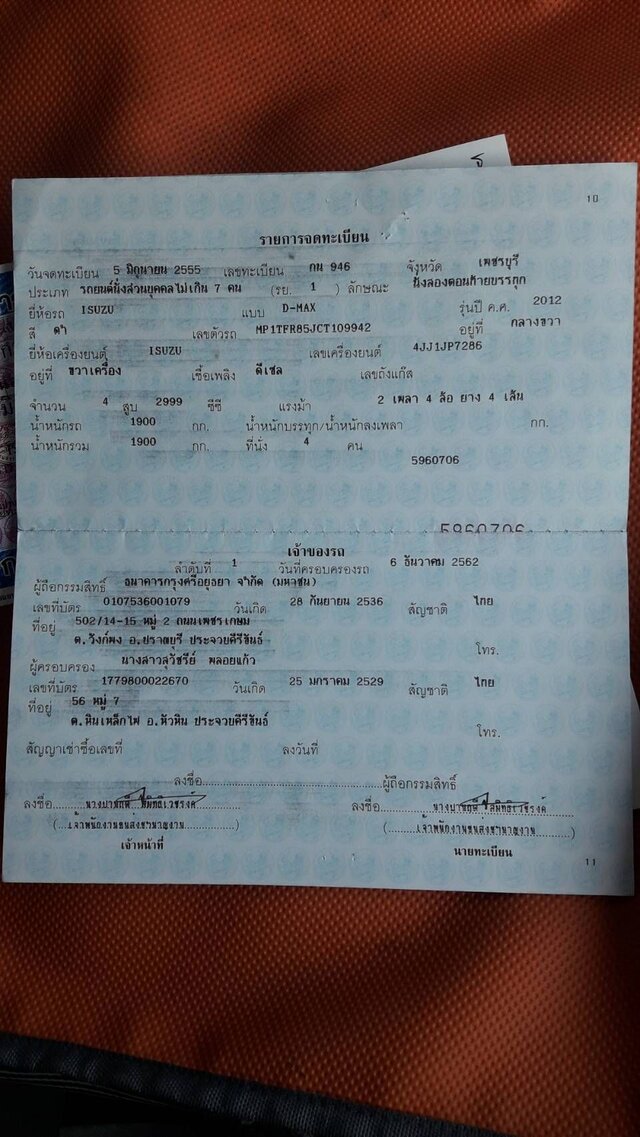 10
รายการจดทะเบียน
วันจดทะเบียน 5 มิถุนายน 2555 เลขทะเบียน กน 946 จังหวัด เพชรบุรี
ประเภท รถยนต์นั่งส่วนบุคคลไม่เกิน 7 คน (รย. 1 ) ลักษณะ นั่งสองตอนท้ายบรรทุก
ยี่ห้อรถ ISUZU แบบ D-MAX รุ่นปี ค.ศ. 2012
สี ดำ เลขตัวรถ MP1TFR85JCT109942 อยู่ที่ กลางขวา
ยี่ห้อเครื่องยนต์ ISUZU เลขเครื่องยนต์ 4JJ1JP7286
อยู่ที่ ขวาเครื่อง เชื้อเพลิง ดีเซล เลขถังแก๊ส
จำนวน 4 สูบ 2999 ซีซี แรงม้า 2 เพลา 4 ล้อ ยาง 4 เส้น
น้ำหนักรถ 1900 กก. น้ำหนักบรรทุก/น้ำหนักลงเพลา กก.
น้ำหนักรวม 1900 กก. ที่นั่ง 4 คน
5960706
5960706
เจ้าของรถ
ลำดับที่ 1 วันที่ครอบครองรถ 6 ธันวาคม 2562
ผู้ถือกรรมสิทธิ์ ธนาคารกรุงศรีอยุธยา จำกัด (มหาชน)
เลขที่บัตร 0107536001079 วันเกิด 28 กันยายน 2536 สัญชาติ ไทย
ที่อยู่ 502/14-15 หมู่ 2 ถนนเพชรเกษม
ต.วังก์พง อ.ปราณบุรี ประจวบคีรีขันธ์ โทร.
ผู้ครอบครอง นางสาวสุวัชรีย์ พลอยแก้ว
เลขที่บัตร 1779800022670 วันเกิด 25 มกราคม 2529 สัญชาติ ไทย
ที่อยู่ 56 หมู่ 7
ต.หินเหล็กไฟ อ.หัวหิน ประจวบคีรีขันธ์ โทร.
สัญญาเช่าซื้อเลขที่ ลงวันที่
ลงชื่อ ผู้ถือกรรมสิทธิ์
ลงชื่อ ลงชื่อ
(เจ้าพนักงานขนส่งชำนาญงาน) (เจ้าพนักงานขนส่งชำนาญงาน)
เจ้าหน้าที่ นายทะเบียน
11